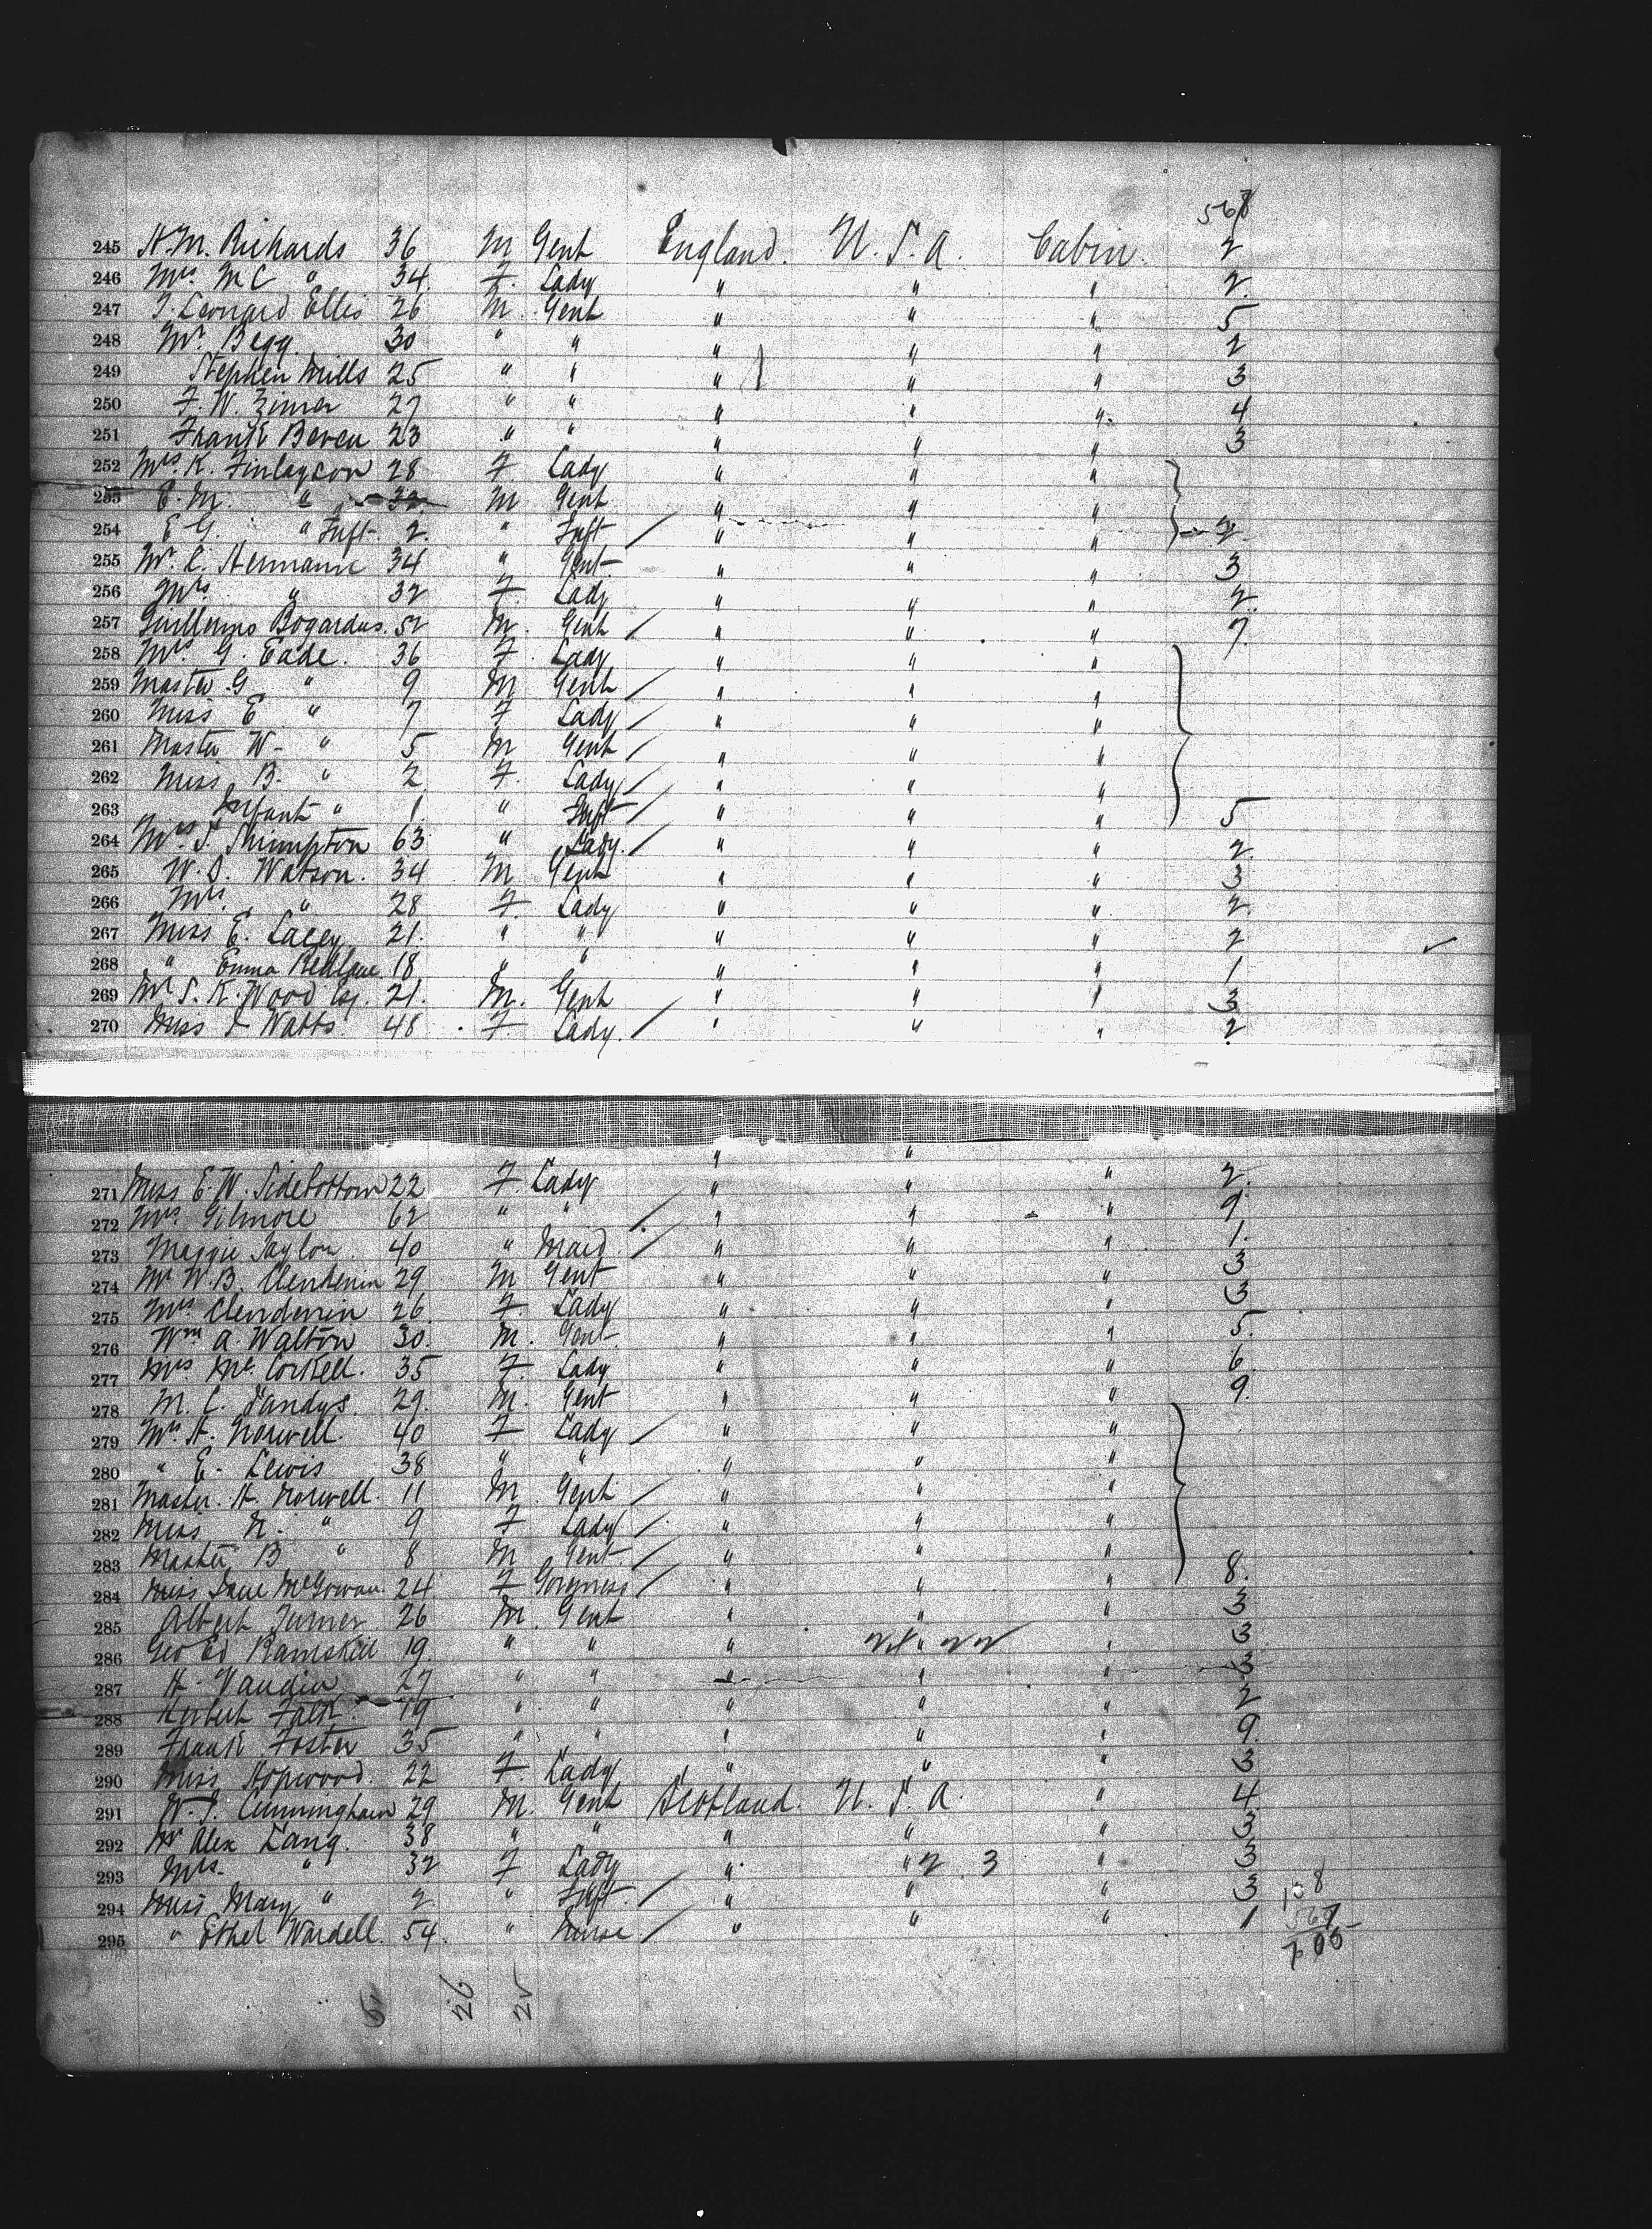 568
245 H.M. Richards 36 M Gent England. U.S.A. Cabin. 2
246 Mrs. M C " 34. F. Lady " " " 2.
247 T. Leonard Ellis 26 M. Gent " " " 5
248 Mr. Begg. 30 " " " " " 2
249 Stephen Mills 25 " " " " " 3
250 F. W. Zimer 27 " " " " " 4
251 Frank Beven 23 " " " " " 3
252 Mrs. K. Finlayson 28 F Lady " " "
253 E. M. " 32 M Gent " " "
254 E G. " Inft. 2. " Inft " " " 2
255 Mr. C. Hermann 34 " Gent. " " " 3
256 Mrs. " 32 F. Lady " " " 2.
257 Guillermo Bogardus. 52 M. Gent " " " 7.
258 Mrs G. Eade. 36 F. Lady " " "
259 Master G " 9 M Gent " " "
260 Miss E " 7 F Lady " " "
261 Master W- " 5 M Gent " " "
262 Miss B. " 2 F. Lady " " "
263 Infant " 1. " Inft " " " 5
264 Mrs. S. Shimpton 63 " Lady. " " " 2.
265 W. D. Watson. 34 M Gent " " " 3
266 Mrs. " 28 F. Lady " " " 2.
267 Miss E. Lacey 21. " " " " " 2
268 " Emma 18 " " " " " 1
269 Mr S. K. Wood Esq. 21. M. Gent " " " 3
270 Miss Watts 48 F. Lady. " " " 2
" "
271 Miss E. W. Sidebottom 22 F. Lady " " " 2.
272 Mrs. Gilmore 62 " " " " " 9
273 Maggie Taylor. 40 " Maid. " " " 1.
274 Mr W. B. Clendenin 29 M Gent " " " 3
275 Mrs Clendenin 26. F. Lady " " " 3
276 Wm A. Walton 30. M. Gent " " " 5.
277 Mrs Mc Corkell. 35 F. Lady " " " 6.
278 M. C. Sandys. 29. M. Gent " " " 9.
279 Mrs H. Norwell. 40 F Lady " " "
280 " E. Lewis 38 " " " " "
281 Master. H. Norwell. 11 M. Gent " " "
282 Miss N. " 9 F Lady " " "
283 Master B " 8 M Gent. " " " 8.
284 Miss Jane McGowan. 24 F Governess " " " 3
285 Albert Turner 26 M. Gent " " " 3
286 Geo Ed Ramskill 19. " " " " " 3
287 H. Vaudin 27 " " " " " 2
288 Herbert Falk. 19 " " " " " 9.
289 Frank Foster 35 " " " " " 3
290 Miss Hopwood. 22 F. Lady " " "
291 W. J. Cunningham 29 M. Gent Scotland. U. S. A. " 4
292 Mr Alex Lang. 38 " " " " " 3
293 Mrs. " 32 F Lady " " 2 3 " 3
294 Miss Mary " 2 " Inft. " " " 3 108
295 " Ethel Wardell. 54. " Nurse " " " 1 567
26 25